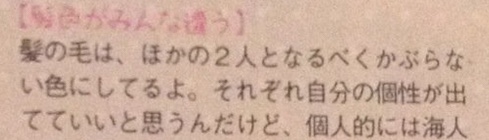 【髪色がみんな違う】
髪の毛は、ほかの2人となるべくかぶらな
い色にしてるよ。それぞれ自分の個性が出
てていいと思うんだけど、個人的には海人